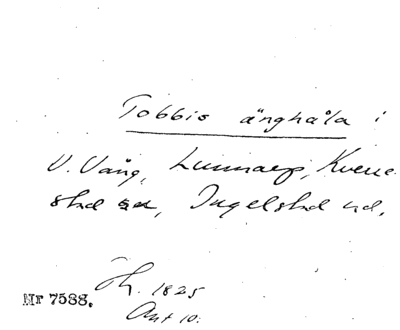 Tobbis änghåla i
V. Vång, Lunnarp, Kvene-
stad sn, Ingelstad hd,
Nr 7588. Th. 1825
Ant 10: